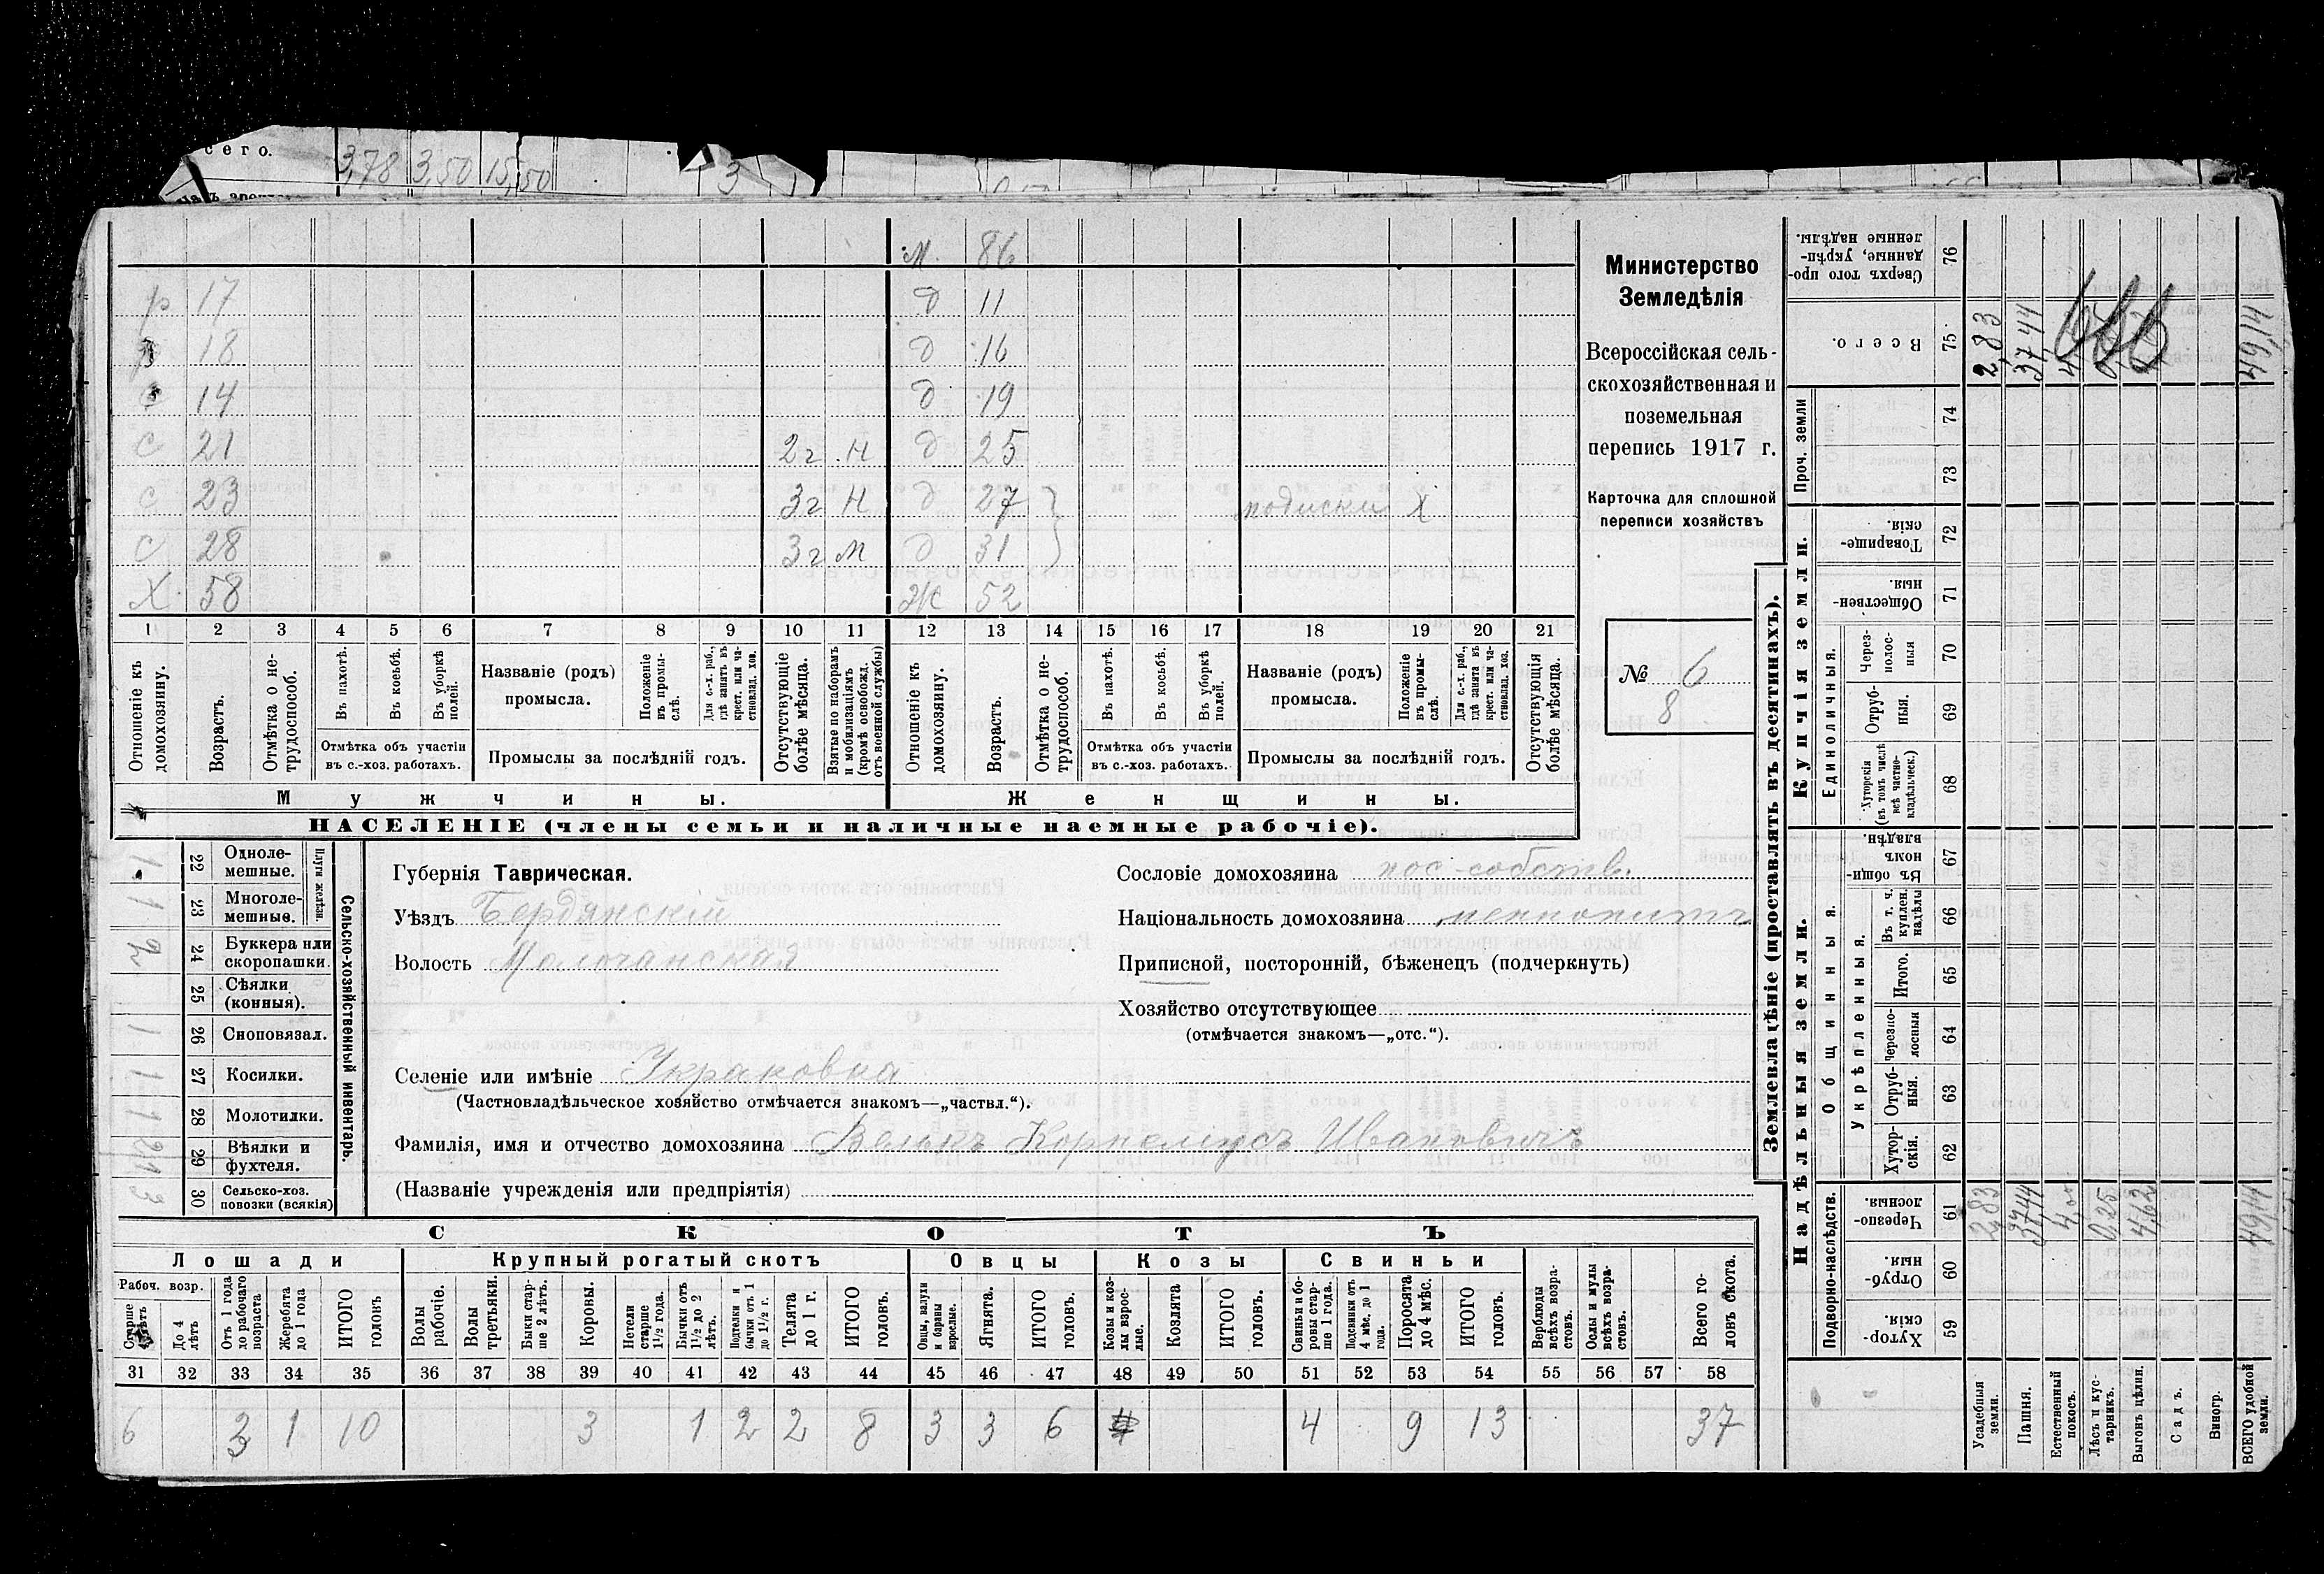 сего. 3,78 3,50 15,50 3
м. 86
р 17 д 11
р 18 д 16
с 14 д 19
с 21 2г н д 25
с 23 3г н д 27 подиски Х
с 28 3г м д 31
Х 58 Ж 52
1 2 3 4 5 6 7 8 9 10 11 12 13 14 15 16 17 18 19 20 21
Отношеніе къ домохозяину.
Возрастъ.
Отмѣтка о не-трудоспособ.
Въ пахотѣ.
Въ косьбѣ.
Въ уборкѣ полей.
Отмѣтка объ участіи
въ с.-хоз. работахъ.
Названіе (родъ)
промысла.
Положеніе въ промы-слѣ.
Для с.-х. раб., гдѣ занятъ въ крест. или ча-стновлад. хоз.
Промыслы за послѣдній годъ.
Отсутствующіе болѣе мѣсяца.
Взятые по наборамъ и мобилизаціямъ (кромѣ освобожд. отъ военной службы)
Отношеніе къ домохозяину.
Возрастъ.
Отмѣтка о не-трудоспособ.
Въ пахотѣ.
Въ косьбѣ.
Въ уборкѣ полей.
Отмѣтка объ участіи
въ с.-хоз. работахъ.
Названіе (родъ)
промысла.
Положеніе въ промы-слѣ.
Для с.-х. раб., гдѣ занята въ крест. или ча-стновлад. хоз.
Промыслы за послѣдній годъ.
Отсутствующія болѣе мѣсяца.
Мужчины. Женщины.
НАСЕЛЕНІЕ (члены семьи и наличные наемные рабочіе).
Министерство
Земледѣлія
Всероссійская сель-
скохозяйственная и
поземельная
перепись 1917 г.
Карточка для сплошной
переписи хозяйствъ
№ 6
8
Сельско-хозяйственный инвентарь.
Плуги желѣзн.
22 Одноле-мешные. 1
23 Многоле-мешные. 1
24 Буккера или скоропашки. 2
25 Сѣялки (конныя).
26 Сноповязал. 1
27 Косилки. 1
28 Молотилки. 1
29 Вѣялки и фухтеля.
30 Сельско-хоз. повозки (всякія) 3
Губернія Таврическая.
Уѣздъ Бердянскій
Волость Молочанская
Сословіе домохозяина пос-собств.
Національность домохозяина меннонитъ
Приписной, посторонній, бѣженецъ (подчеркнуть)
Хозяйство отсутствующее
(отмѣчается знакомъ—„отс.“).
Селеніе или имѣніе
(Частновладѣльческое хозяйство отмѣчается знакомъ—„частвл.“).
Фамилія, имя и отчество домохозяина Велькъ Корнелиусъ Ивановичъ
(Названіе учрежденія или предпріятія)
СКОТЪ
Лошади Крупный рогатый скотъ Овцы Козы Свиньи
Рабоч. возр.
Старше 4 лѣтъ
До 4 лѣтъ
Отъ 1 года до рабочаго возраста
Жеребята до 1 года
ИТОГО головъ
Волы рабочіе.
Волы третьяки.
Быки стар-ше 2 лѣтъ.
Коровы.
Нетели старше 1½ года.
Бычки отъ 1½ до 2 лѣтъ.
Подтелки и бычки отъ 1 до 1½ г.
Телята до 1 г.
ИТОГО головъ.
Овцы, валухи и бараны взрослые.
Ягнята.
ИТОГО головъ.
Козы и коз-лы взрос-лые.
Козлята
ИТОГО головъ.
Свиньи и бо-ровы стар-ше 1 года.
Подсвинки отъ 4 мѣс. до 1 года.
Поросята до 4 мѣс.
ИТОГО головъ.
Верблюды всѣхъ возра-стовъ.
Ослы и мулы всѣхъ возра-стовъ.
Всего го-ловъ скота.
31 32 33 34 35 36 37 38 39 40 41 42 43 44 45 46 47 48 49 50 51 52 53 54 55 56 57 58
6 3 1 10 3 1 2 2 8 3 3 6 4 9 13 37
Землевладѣніе (проставлять въ десятинахъ).
Купчія земли.
Надѣльныя земли.
Сверхъ того про-данные, укрѣп-ленные надѣлы. 76
Всего. 75 2,83 37,44 49,14
Проч. земли 74 73
Товарище-скія. 72
Обществен-ныя. 71
Единоличныя.
Через-полос-ныя 70
Отруб-ныя. 69
Хуторскія (въ томъ числѣ всѣ частно-владѣльческ.) 68
Общинныя.
Въ общи-номъ владѣн. 67
Укрѣпленныя.
Въ т. ч. куплен. надѣлы 66
Итого. 65
Черезпо-лосныя 64
Отруб-ныя. 63
Хутор-скія. 62
Подворно-наслѣдств.
Черезпо-лосныя. 61 2,83 37,44 4,00 0,25 4,62 49,14
Отруб-ныя. 60
Хутор-скія 59
Усадебныя земли.
Пашня.
Естественный покосъ.
Лѣсъ и кус-тарникъ.
Выгонъ цѣлин.
Садъ.
Виногр.
ВСЕГО удобной земли.